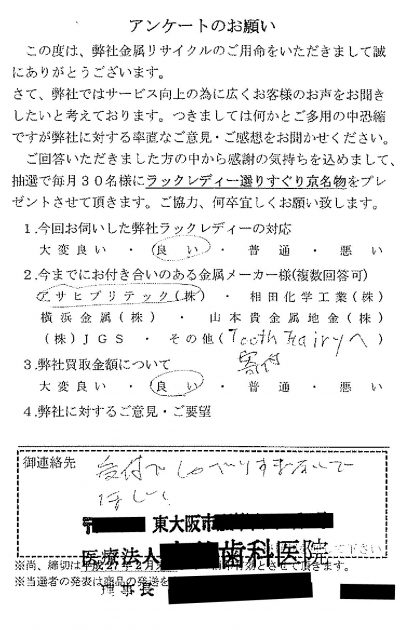 アンケートのお願い
この度は、弊社金属リサイクルのご用命をいただきまして誠
にありがとうございます。
さて、弊社ではサービス向上の為に広くお客様のお声をお聞き
したいと考えております。つきましては何かとご多用の中恐縮
ですが弊社に対する率直なご意見・ご感想をお聞かせください。
ご回答いただきました方の中から感謝の気持ちを込めまして、
抽選で毎月30名様にラックレディー選りすぐり京名物をプレ
ゼントさせて頂きます。ご協力、何卒宜しくお願い致します。
1.今回お伺いした弊社ラックレディーの対応
大変良い ・ 良い ・ 普通 ・ 悪い
2.今までにお付き合いのある金属メーカー様(複数回答可)
アサヒプリテック(株) ・ 相田化学工業(株)
横浜金属(株) ・ 山本貴金属地金(株)
(株)JGS ・ その他(Tooth Fairyへ)
寄付
3.弊社買取金額について
大変良い ・ 良い ・ 普通 ・ 悪い
4.弊社に対するご意見・ご要望
御連絡先
受付でしゃべりすぎないで
ほしい
〒 東大阪市
医療法人 歯科医院
して下さい
※尚、締切は平成27年2月 有効とさせて頂きます。
※当選者の発表は商品の発送を
理事長